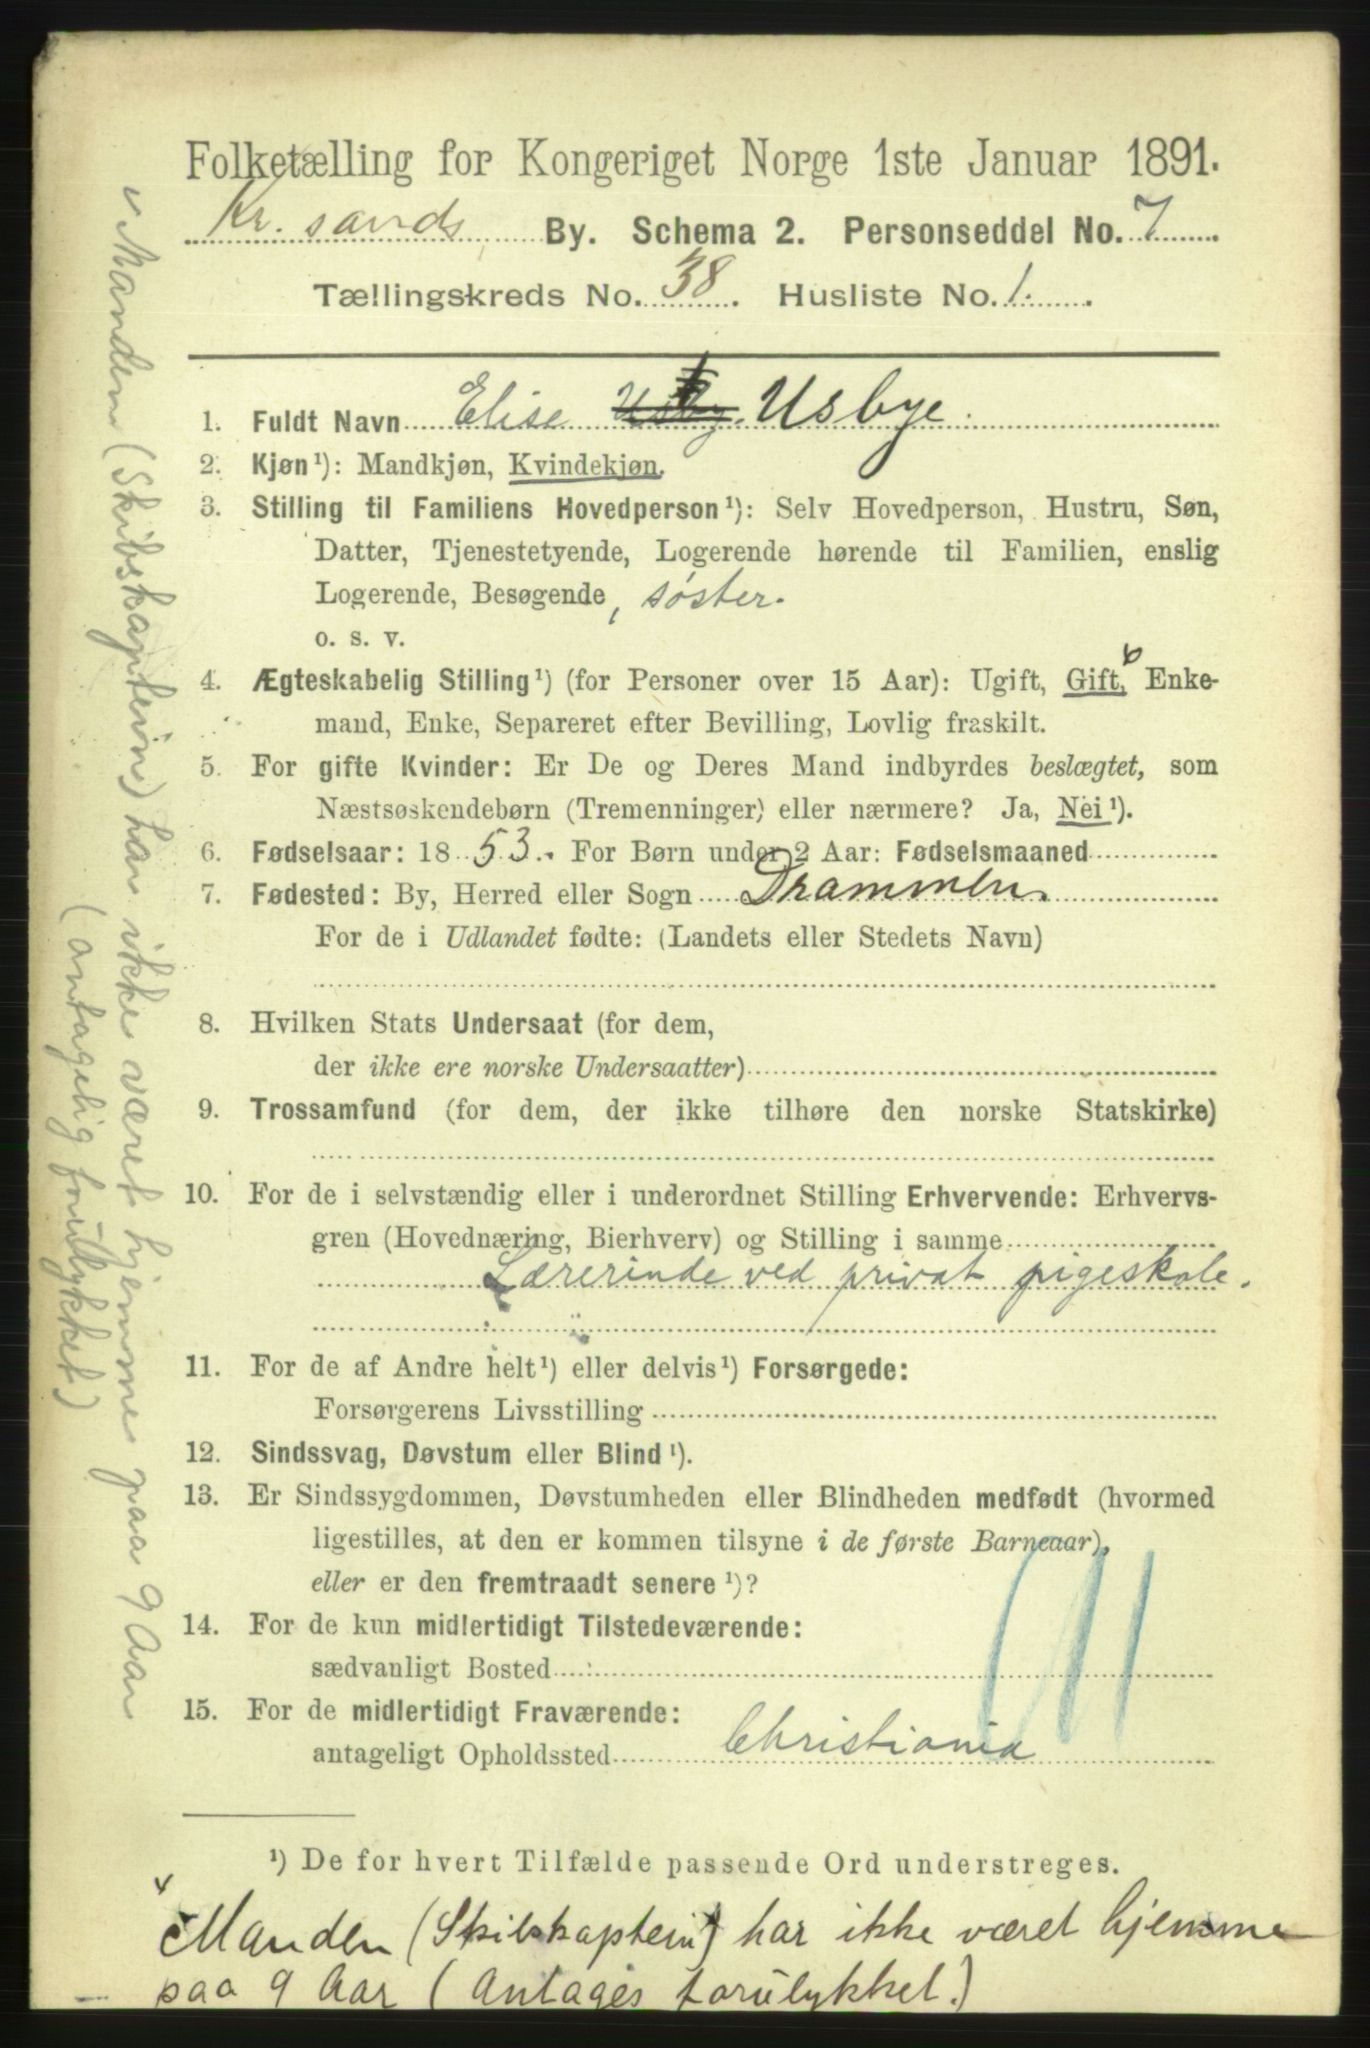 Folketælling for Kongeriget Norge 1ste Januar 1891.
Kr. sands By. Schema 2. Personseddel No. 7
Tællingskreds No. 38. Husliste No. 1.
1. Fuldt Navn Elise Usby. Usbye.
2. Kjøn¹): Mandkjøn, Kvindekjøn.
3. Stilling til Familiens Hovedperson¹): Selv Hovedperson, Hustru, Søn,
Datter, Tjenestetyende, Logerende hørende til Familien, enslig
Logerende, Besøgende, søster.
o. s. v.
4. Ægteskabelig Stilling¹) (for Personer over 15 Aar): Ugift, Gift, Enke-
mand, Enke, Separeret efter Bevilling, Lovlig fraskilt.
5. For gifte Kvinder: Er De og Deres Mand indbyrdes beslægtet, som
Næstsøskendebørn (Tremenninger) eller nærmere? Ja, Nei¹).
6. Fødselsaar: 1853. For Børn under 2 Aar: Fødselsmaaned
7. Fødested: By, Herred eller Sogn Drammen.
For de i Udlandet fødte: (Landets eller Stedets Navn)
8. Hvilken Stats Undersaat (for dem,
der ikke ere norske Undersaatter)
9. Trossamfund (for dem, der ikke tilhøre den norske Statskirke)
10. For de i selvstændig eller i underordnet Stilling Erhvervende: Erhvervs-
gren (Hovednæring, Bierhverv) og Stilling i samme
Lærerinde ved privat pigeskole.
11. For de af Andre helt¹) eller delvis¹) Forsørgede:
Forsørgerens Livsstilling
12. Sindssvag, Døvstum eller Blind¹).
13. Er Sindssygdommen, Døvstumheden eller Blindheden medfødt (hvormed
ligestilles, at den er kommen tilsyne i de første Barneaar),
eller er den fremtraadt senere¹)?
14. For de kun midlertidigt Tilstedeværende:
sædvanligt Bosted
15. For de midlertidigt Fraværende:
antageligt Opholdssted Christiania
¹) De for hvert Tilfælde passende Ord understreges.
Manden (Skibskaptein) har ikke været hjemme
paa 9 Aar (Antages forulykket.)
Manden (Skibskaptein) har ikke været hjemme paa 9 Aar
(antagelig forulykket)